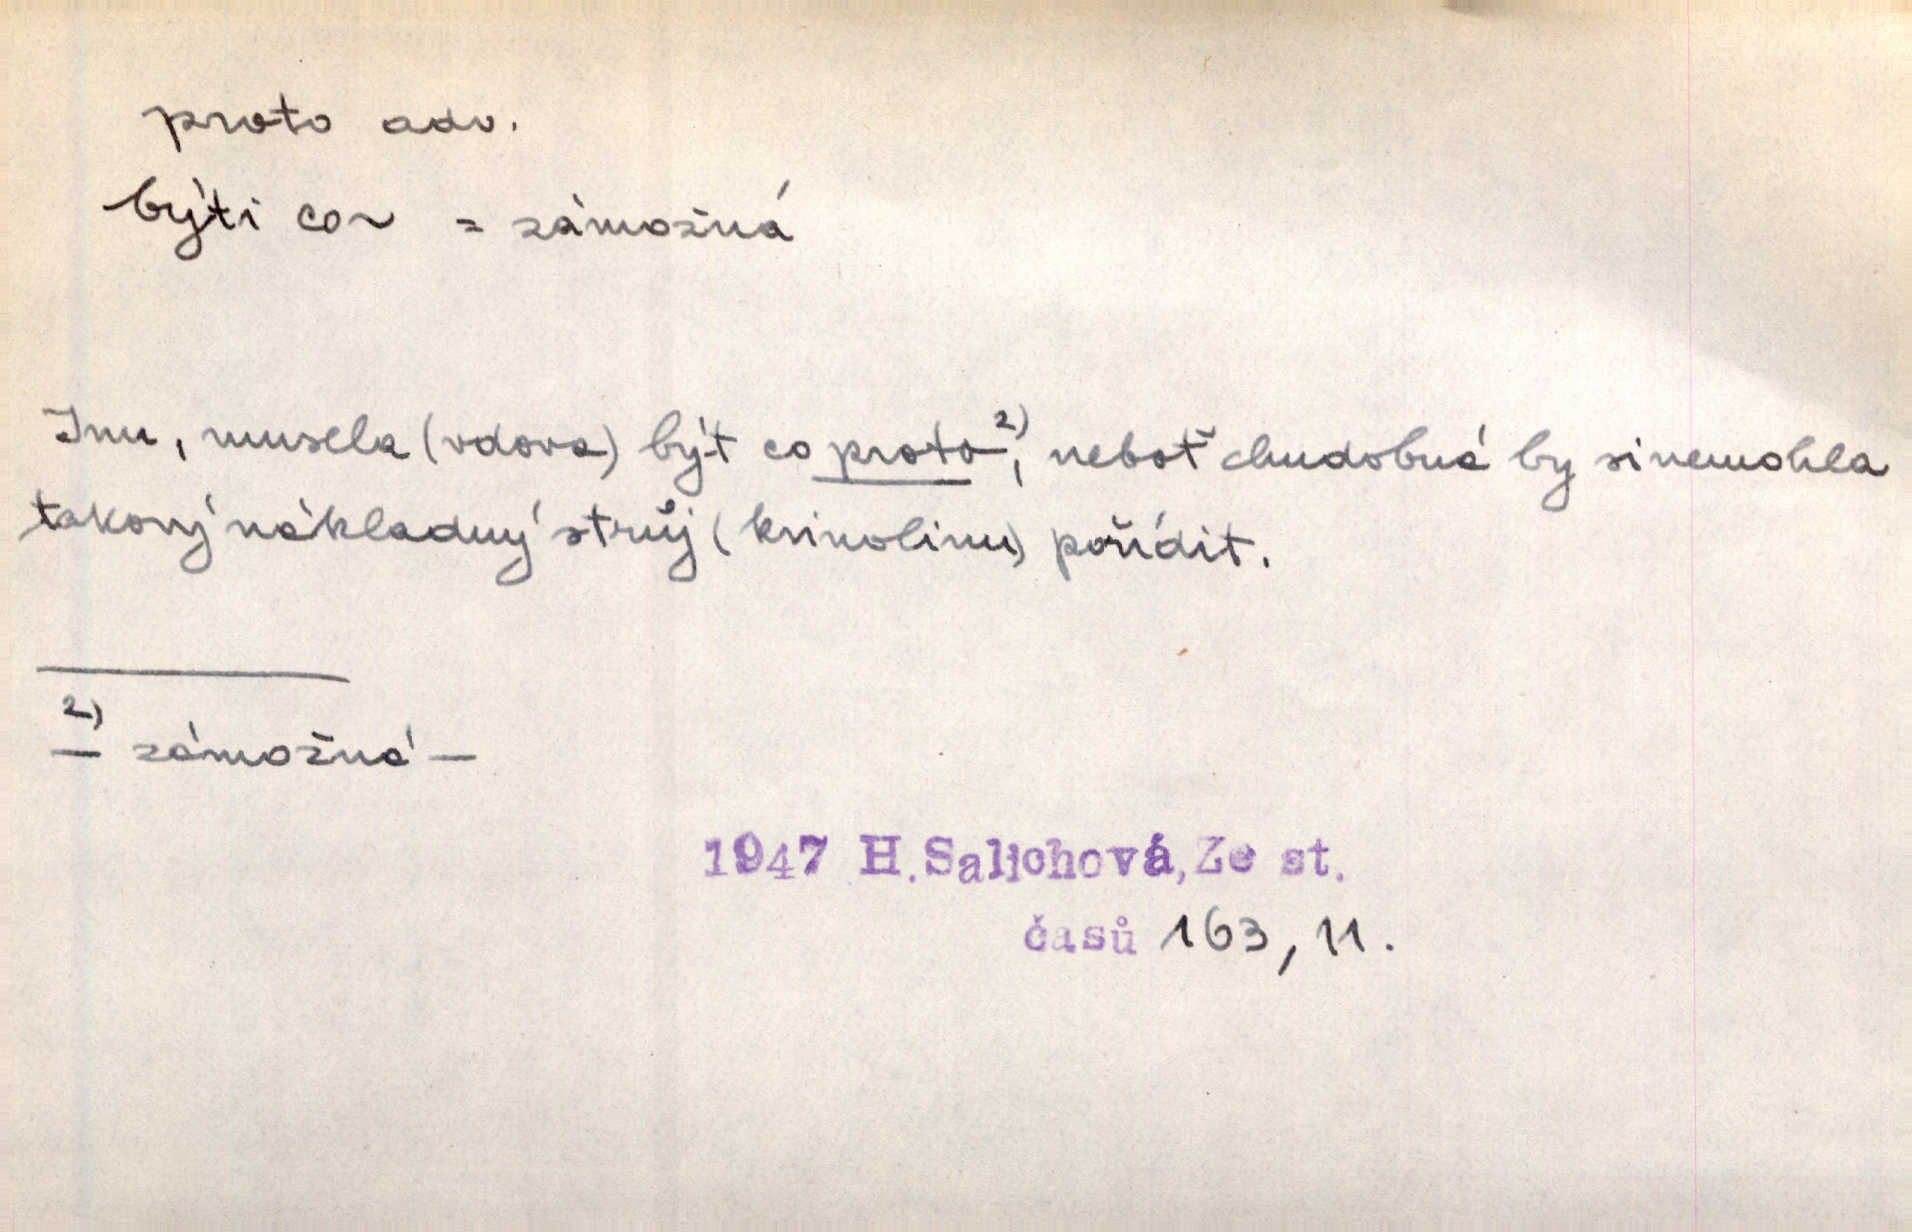 proto adv.
býti co ~ = zámožná
Inu, musela (vdova) být co proto²⁾, neboť chudobná by si nemohla
takový nákladný strůj (krinolinu) pořídit.
2)
— zámožná —
1947 H.Salichová,Ze st.
časů 163, 11.